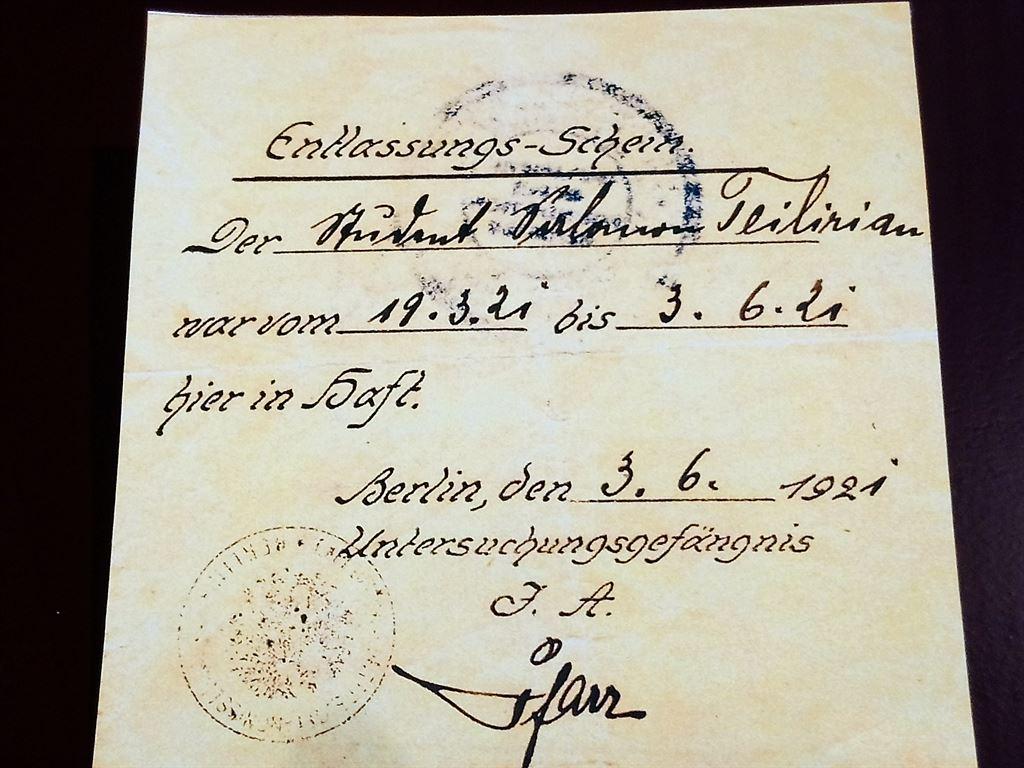 Entlassungs-Schein.
Der Student Salomon Teilirian
war vom 19.3.21 bis 3. 6. 21
hier in Haft.
Berlin, den 3. 6. 1921
Untersuchungsgefängnis
J. A.